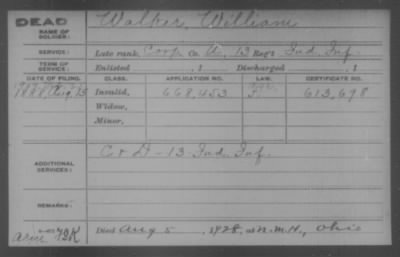 DEAD
NAME OF SOLDIER: Walper, William
SERVICE: Late rank, Corp Co. A, 13 Reg't Ind. Inf.
TERM OF SERVICE: Enlisted , 1 Discharged , 1
DATE OF FILING. CLASS. APPLICATION NO. LAW. CERTIFICATE NO.
1888, Aug 15 Invalid, 668,453 613,698
Widow,
Minor,
ADDITIONAL SERVICES: C & D - 13 Ind. Inf.
REMARKS:
Died Aug 5, 1928, at N.M.H., Ohio